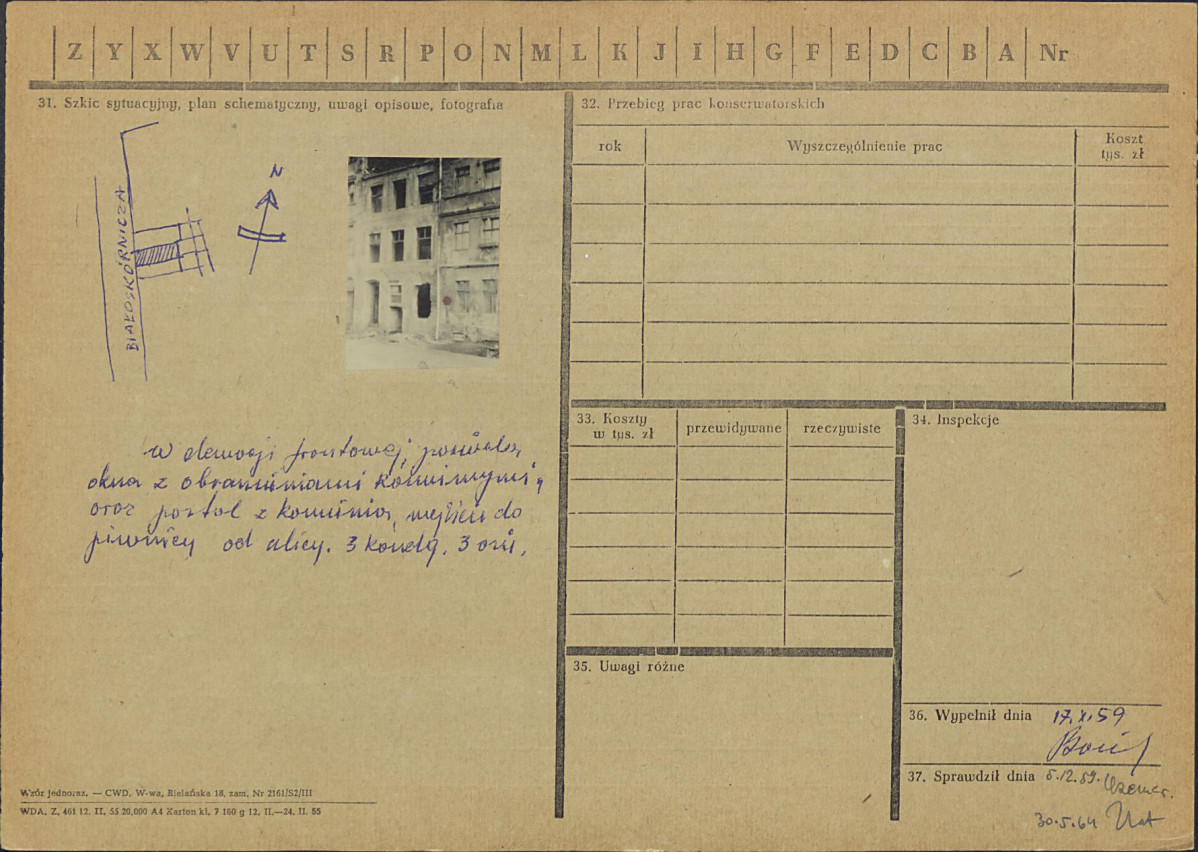 Z Y X W V U T S R P O N M L K J I H G F E D C B A Nr
31. Szkic sytuacyjny, plan schematyczny, uwagi opisowe, fotografia
BIAŁOSKÓRNICZA
N
w elewacji frontowej,
okna z obramieniami kamiennymi,
oraz portal z kamienia, wejście do
piwnicy od ulicy. 3 kondg. 3 osi.
Wzór jednoraz. — CWD, W-wa, Bielańska 18, zam. Nr 2161/S2/III
WDA. Z. 461 12. II. 55 20.000 A4 Karton kl. 7 160 g 12. II.—24. II. 55
32. Przebieg prac konserwatorskich
rok
Wyszczególnienie prac
Koszt
tys. zł
33. Koszty
w tys. zł
przewidywane
rzeczywiste
34. Inspekcje
35. Uwagi różne
36. Wypełnił dnia 17.X.59
37. Sprawdził dnia 5.12.59.
30.5.64